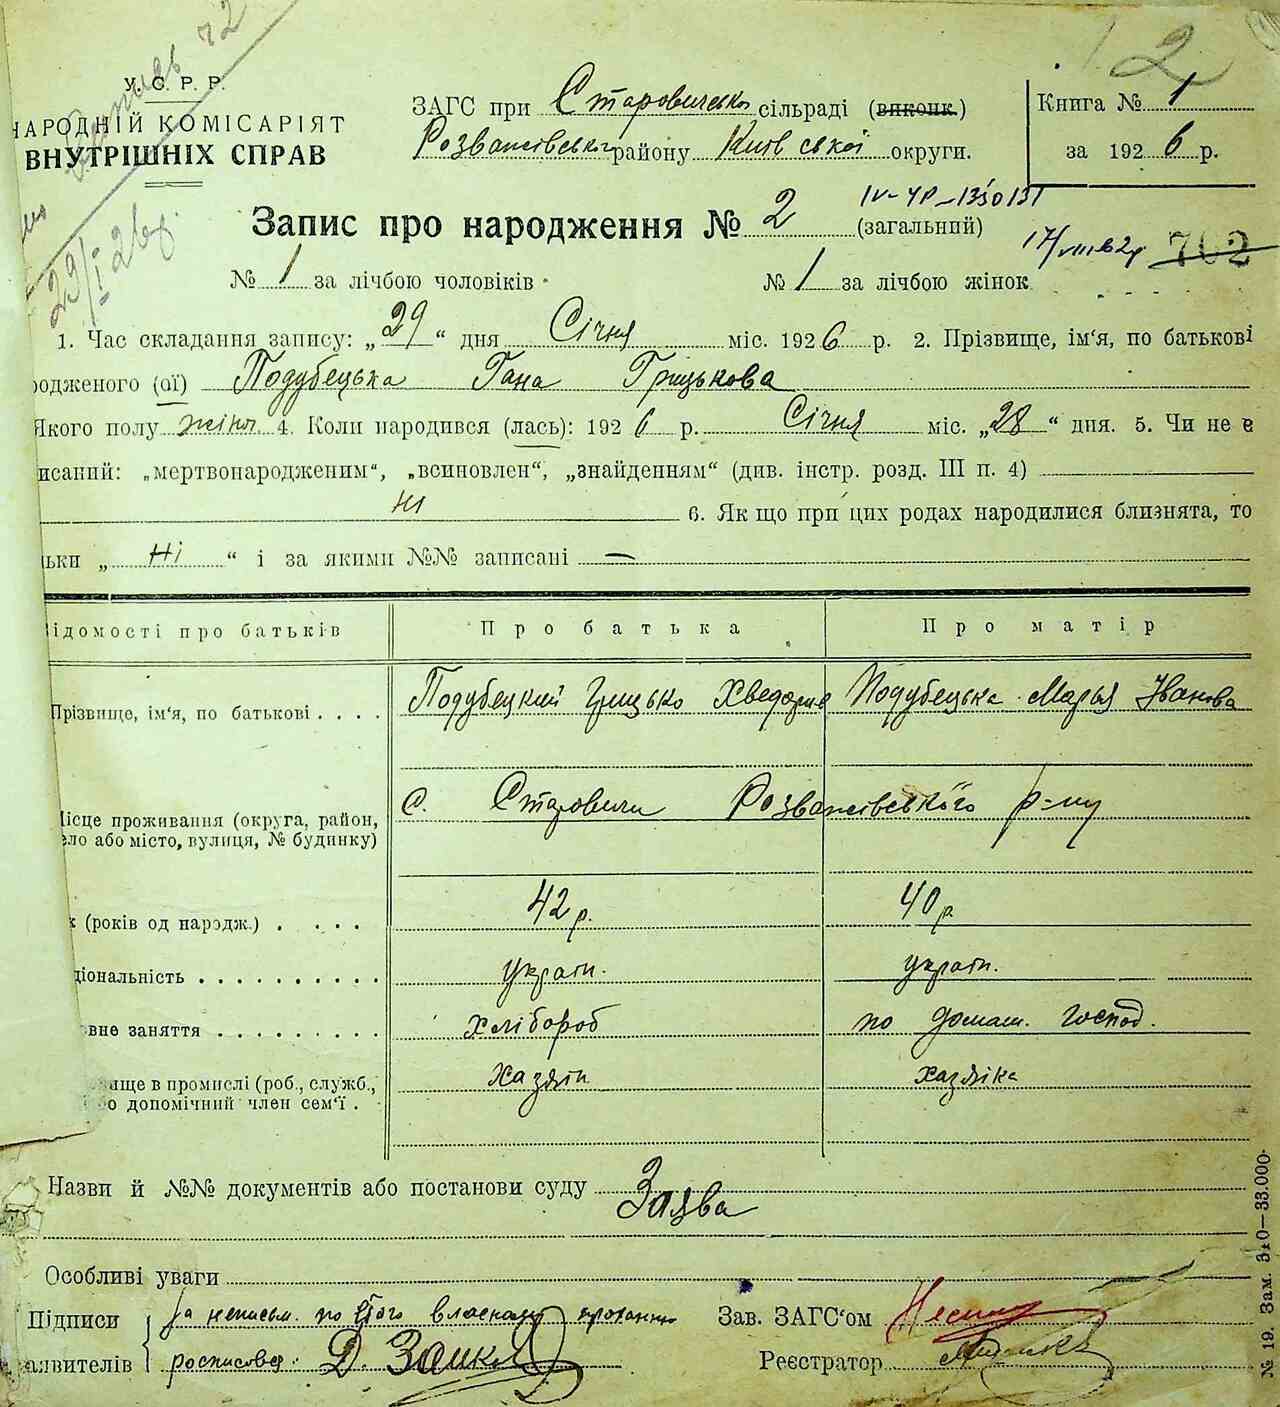 У. С. Р. Р.
НАРОДНІЙ КОМІСАРІЯТ
ВНУТРІШНІХ СПРАВ
ЗАГС при Старовичської сільраді (виконк.)
Розважівського району Київської округи.
Книга № 1
за 1926 р.
2
29/I 26р.
Запис про народження № 2 (загальний)
IV-ЧР-1350131
17/VIII 62р 702
№ 1 за лічбою чоловіків
№ 1 за лічбою жінок
1. Час складання запису: „29“ дня Січня міс. 1926 р. 2. Прізвище, ім‘я, по батькові
родженого (ої) Подубецька Гана Грицькова
Якого полу жіно. 4. Коли народився (лась): 1926 р. Січня міс. „28“ дня. 5. Чи не є
исаний: „мертвонародженим“, „всиновлен“, „знайденням“ (див. інстр. розд. III п. 4)
Ні 6. Якщо при цих родах народилися близнята, то
ьки „Ні“ і за якими №№ записані —
ідомості про батьків Про батька Про матір
Прізвище, ім‘я, по батькові . . . . Подубецкий Грицько Хведорів Подубецька Марья Іванова
Місце проживання (округа, район,
ело або місто, вулиця, № будинку)
С. Старовичи Розважівського р-ну
к (років од народж.) . . . . . 42 р. 40 р
ціональність . . . . . . . . . . україн. україн.
вне заняття . . . . . . . . . хлібороб по домаш. господ.
ище в промислі (роб., служб.,
о допомічний член сем‘ї . . Хазяїн Хазяїка
Назви й №№ документів або постанови суду Заява
Особливі уваги
Підписи
аявителів
За неписьм. по його власному проханню
росписовся: Д. Заико
Зав. ЗАГС‘ом
Реєстратор
№ 19. Зам. 310—33.000